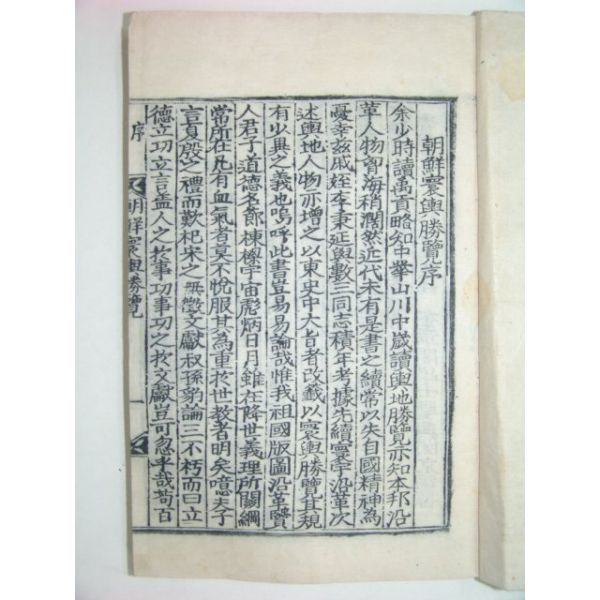 朝鮮寰輿勝覽序
余少時讀禹貢略知中華山川中歲讀輿地勝覽亦知本邦沿
革人物智海稍濶然近代未有是書之續常以失自國精神爲
憂幸玆戚姪李秉延與數三同志積年考據先續寰宇沿革次
述輿地人物亦增之以東史中大旨者改籤以寰輿勝覽其規
有少異之義也嗚呼此書豈易易論哉惟我祖國版圖沿革賢
人君子道德名節棟樑宇宙彪炳日月雖在降世義理所關綱
常所在凡有血氣者莫不悅服其為重於世教者明矣噫夫子
言夏殷之禮而歎杞宋之無徵文獻叔孫豹論三不朽而曰立
德立功立言盖人之於事功事功之於文獻豈可忽乎哉苟百
序
朝鮮寰輿勝覽
一